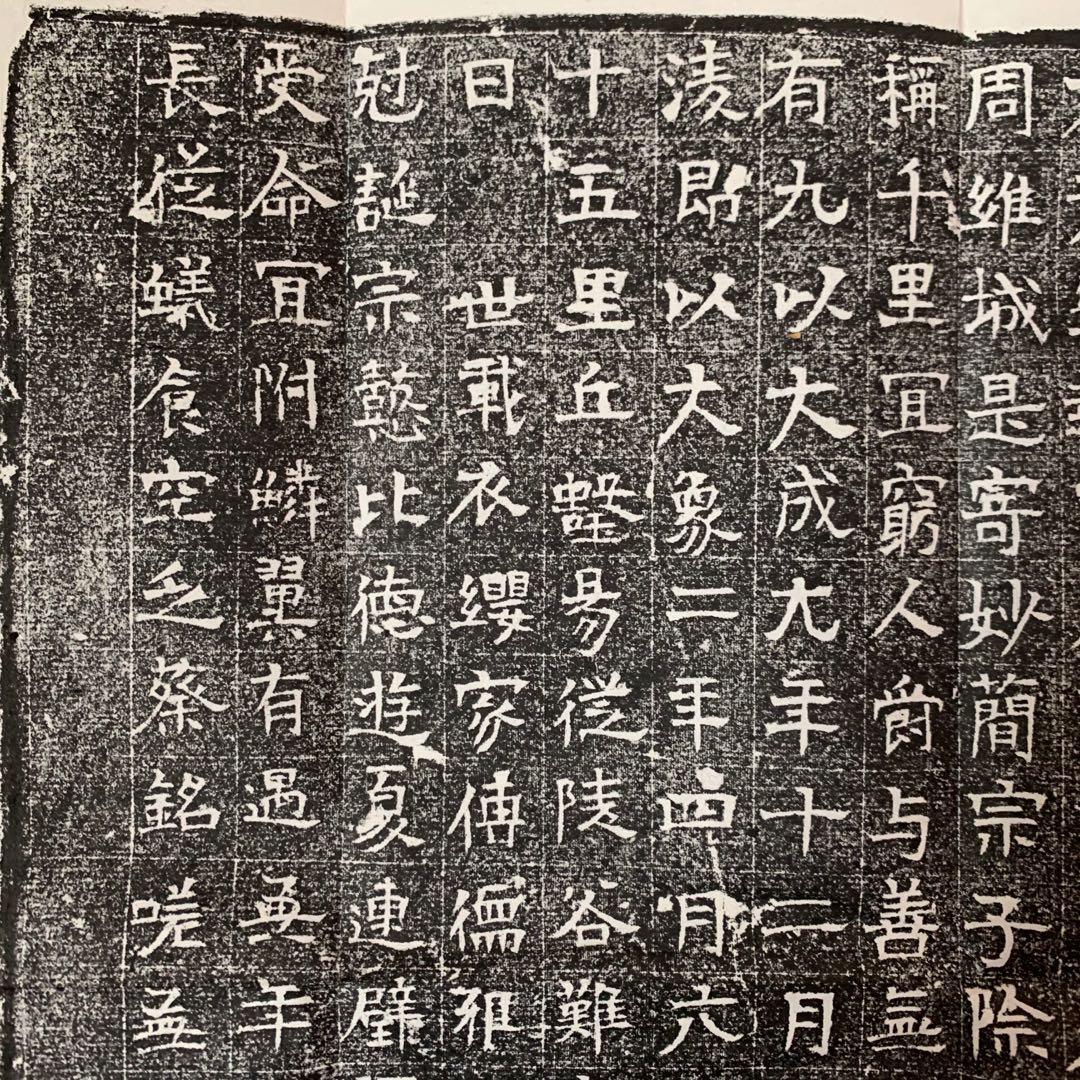 周維城是寄妙簡宗子除
稱千里冝窮人爵与善無
有九以大成元年十二月
淩即以大象二年四月六
十五里丘壟易從陵谷難
曰 世載衣纓家傳儒雅
尅誕宗懿比德遊夏連璧
受命冝附鱗翼有遇無年
長從蟻食空乏蔡銘嗟無